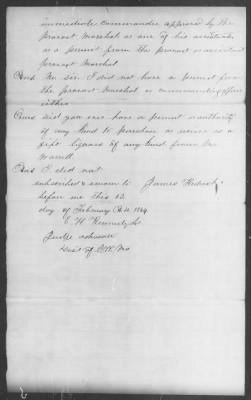 immediate commander approved by the
provost marshal as one of his assistants
as a permit from the provost or assistant
provost marshal
Ans No sir I did not have a permit from
the provost marshal or commanding officer
either
Ques did you ever have a permit or authority
of any kind to purchase or receive as a
gift liquors of any kind from Mr
Worrell
Ans I did not
subscribed & sworn to James
before me this 12
day of February A.D. 1864
E. H. Kennedy
Judge advocate
Dist of